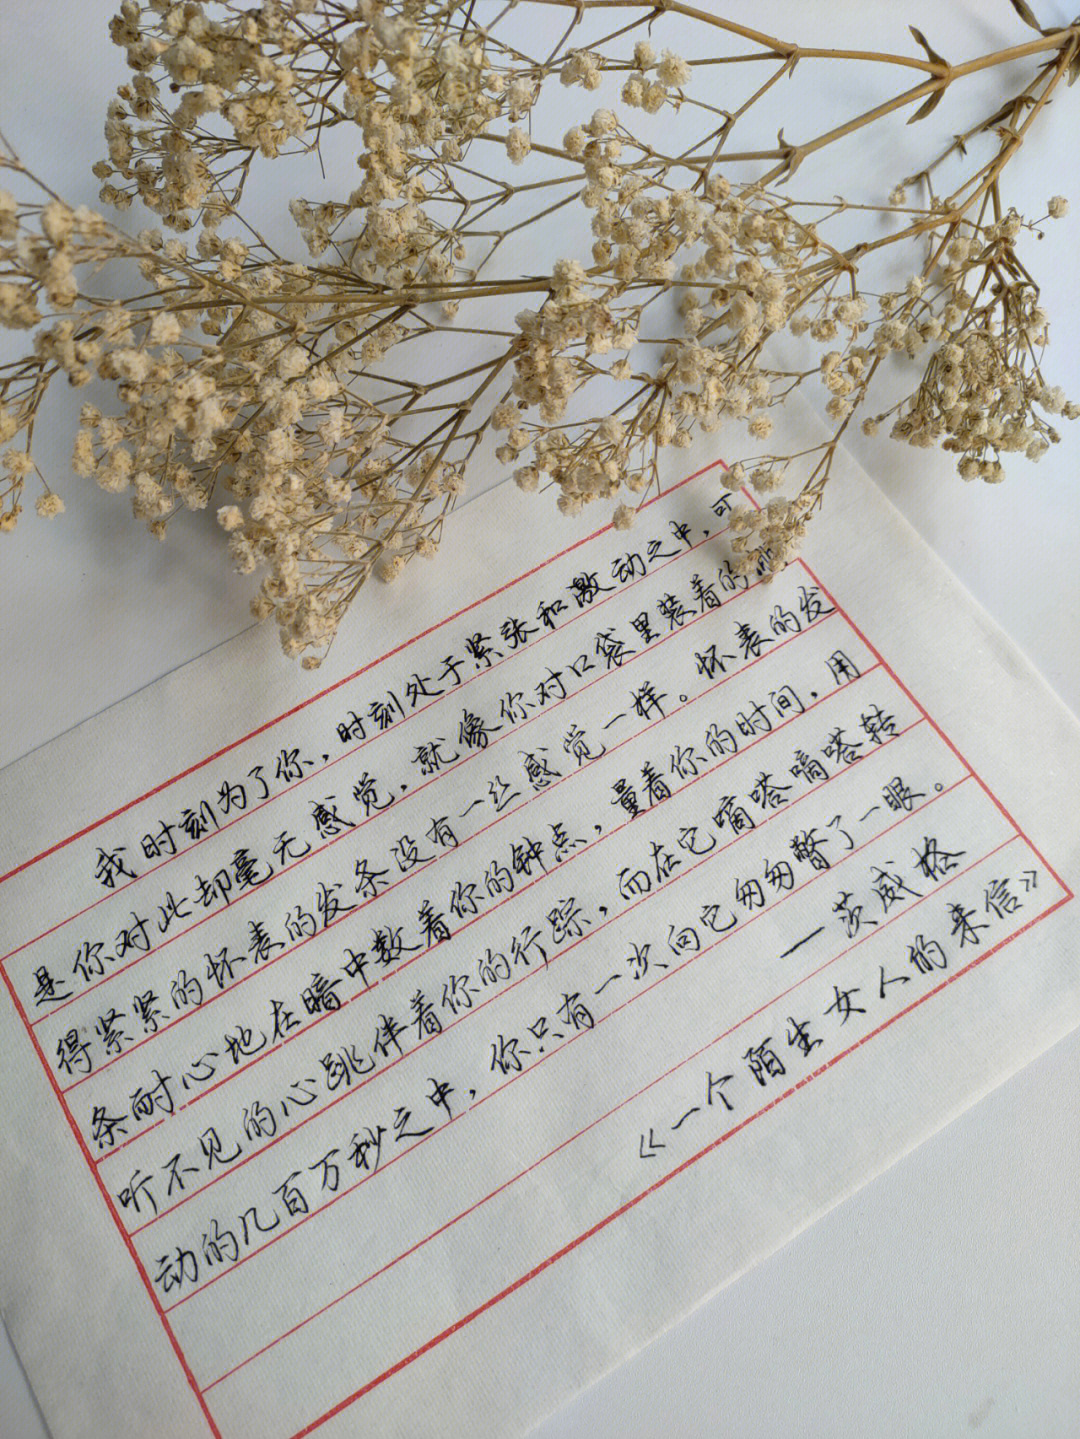 我时刻为了你，时刻处于紧张和激动之中，可
是你对此却毫无感觉，就像你对口袋里装着的
得紧紧的怀表的发条没有一丝感觉一样。怀表的发
条耐心地在暗中数着你的钟点，量着你的时间，用
听不见的心跳伴着你的行踪，而在它嘀嗒嘀嗒转
动的几百万秒之中，你只有一次向它匆匆瞥了一眼。
—茨威格
《一个陌生女人的来信》